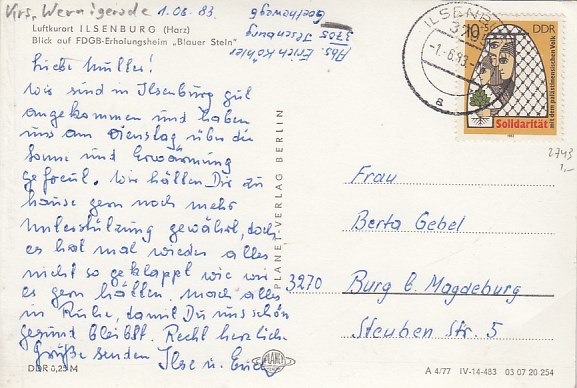 Krs. Wernigerode 1.06.83.
Luftkurort ILSENBURG (Harz)
Blick auf FDGB-Erholungsheim „Blauer Stein“
Abs. Erich Köhler
3705 Ilsenburg
Liebe Mutter!
Wir sind in Ilsenburg gut
angekommen und haben
uns am Dienstag über die
Sonne und Erwärmung
gefreut. Wir hätten Dir zu
hause gern noch mehr
Unterstützung gewährt, doch
es hat mal wieder alles
nicht so geklappt wie wir
es gern hätten. mach alles
in Ruhe, damit Du uns schön
gesund bleibst. Recht herzliche
Grüße senden Ilse u. Erich
DDR 0,25 M
PLANET-VERLAG BERLIN
PLANET
ILSENBURG
3705
-1.-6.83-
a
10
DDR
Solidarität
mit dem palästinensischen Volk
2743
1,-
Frau
Berta Gebel
3270 Burg b. Magdeburg
Steuben Str. 5
A 4/77 IV-14-483 03 07 20 254